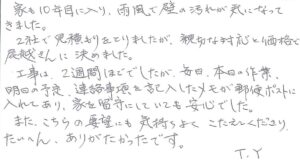 家も10年目に入り、雨風で壁の汚れが気になって
きました。
2社で見積もりをとりましたが、親切な対応と価格で
尾越さんに決めました。
工事は、2週間ほどでしたが、毎日、本日の作業、
明日の予定、連絡事項を記入したメモが郵便ポストに
入れてあり、家を留守にしていても安心でした。
また、こちらの要望にも気持ちよくこたえてくださり
たいへん、ありがたかったです。
T.Y